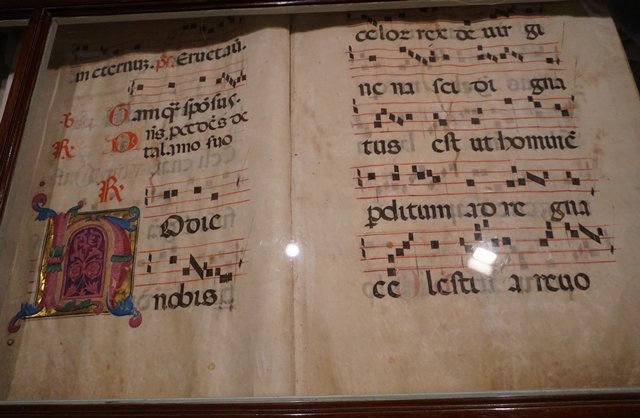 in eternuz. ps. Eructaū.
v Tamq̄ sposus.
R. Dnis, pcedēs de
talamo suo
R.
Hodie
nobis
celor rex de uir gi
ne na sci di gna
tus est ut hominē
pditum ad re gna
ce lestia reuo